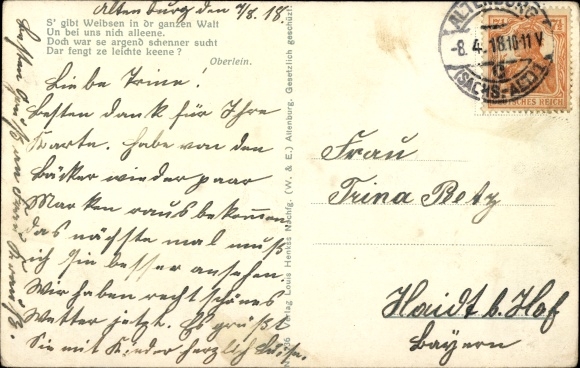 Altenburg den 7/8. 18.
S' gibt Weibsen in ör ganzen Walt
Un bei uns nich alleene.
Doch war se argend schenner sucht
Dar fengt ze leichte keene?
Oberlein.
Liebe Trine!
Besten Dank für Ihre
Karte. Habe von den
Bäcker wieder paar
Marken rausbekommen
das nächste mal muß
ich Sie besser ansehen.
Wir haben recht schönes
Wetter jetzt. Es grüßt
Sie mit Kinder herzlich Luise.
Verlag Louis Henkss Nachfg. (W. & E.) Altenburg. Gesetzlich geschützt
ALTENBURG
-8. 4. 18 10-11 V
(SACHS.-ALT.)
7½ 7½
DEUTSCHES REICH
Frau
Trina Betz
Haidt b. Hof
Bayern